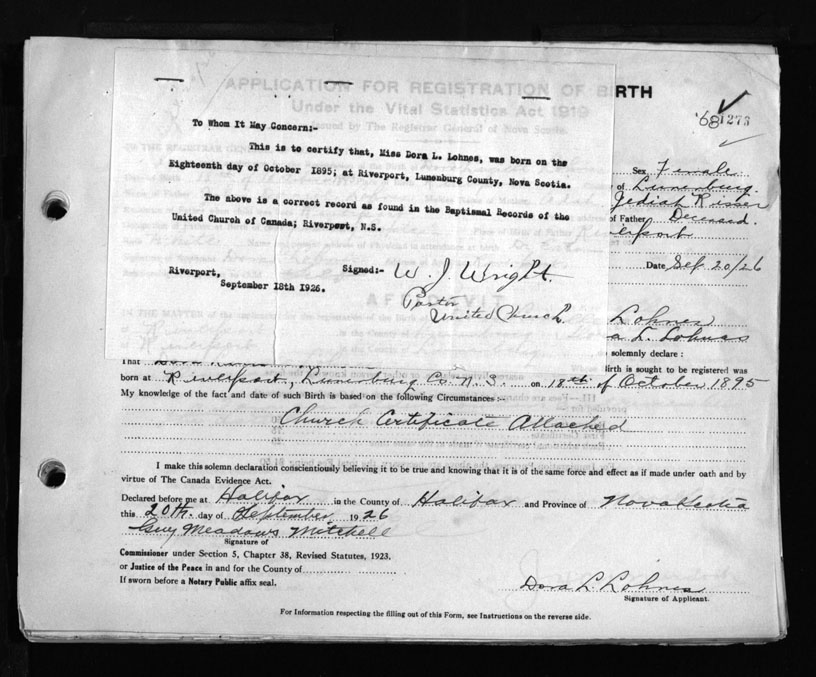 APPLICATION FOR REGISTRATION OF BIRTH
Under the Vital Statistics Act 1919
Issued by The Registrar General of Nova Scotia.
'68 1273
To Whom It May Concern:-
This is to certify that, Miss Dora L. Lohnes, was born on the
Eighteenth day of October 1895; at Riverport, Lunenburg County, Nova Scotia.
The above is a correct record as found in the Baptismal Records of the
United Church of Canada; Riverport, N.S.
Riverport, Signed:- W. J. Wright.
September 18th 1926. Pastor
United Church.
Sex Female
of Lunenburg.
Jediah Risser
of Father Deceased.
Riverport
Date Sep 20/26
AFFIDAVIT
Lohnes
a L. Lohnes
solemnly declare :
That Birth is sought to be registered was
born at Riverport, Lunenburg Co. N. S. on 18th of October 1895
My knowledge of the fact and date of such Birth is based on the following Circumstances :-
Church Certificate Attached
I make this solemn declaration conscientiously believing it to be true and knowing that it is of the same force and effect as if made under oath and by
virtue of The Canada Evidence Act.
Declared before me at Halifax in the County of Halifax and Province of Nova Scotia
this 20th. day of September 1926
Guy Meadows Mitchell
Signature of
Commissioner under Section 5, Chapter 38, Revised Statutes, 1923,
or Justice of the Peace in and for the County of
If sworn before a Notary Public affix seal.
Dora L. Lohnes
Signature of Applicant.
For Information respecting the filling out of this Form, see Instructions on the reverse side.